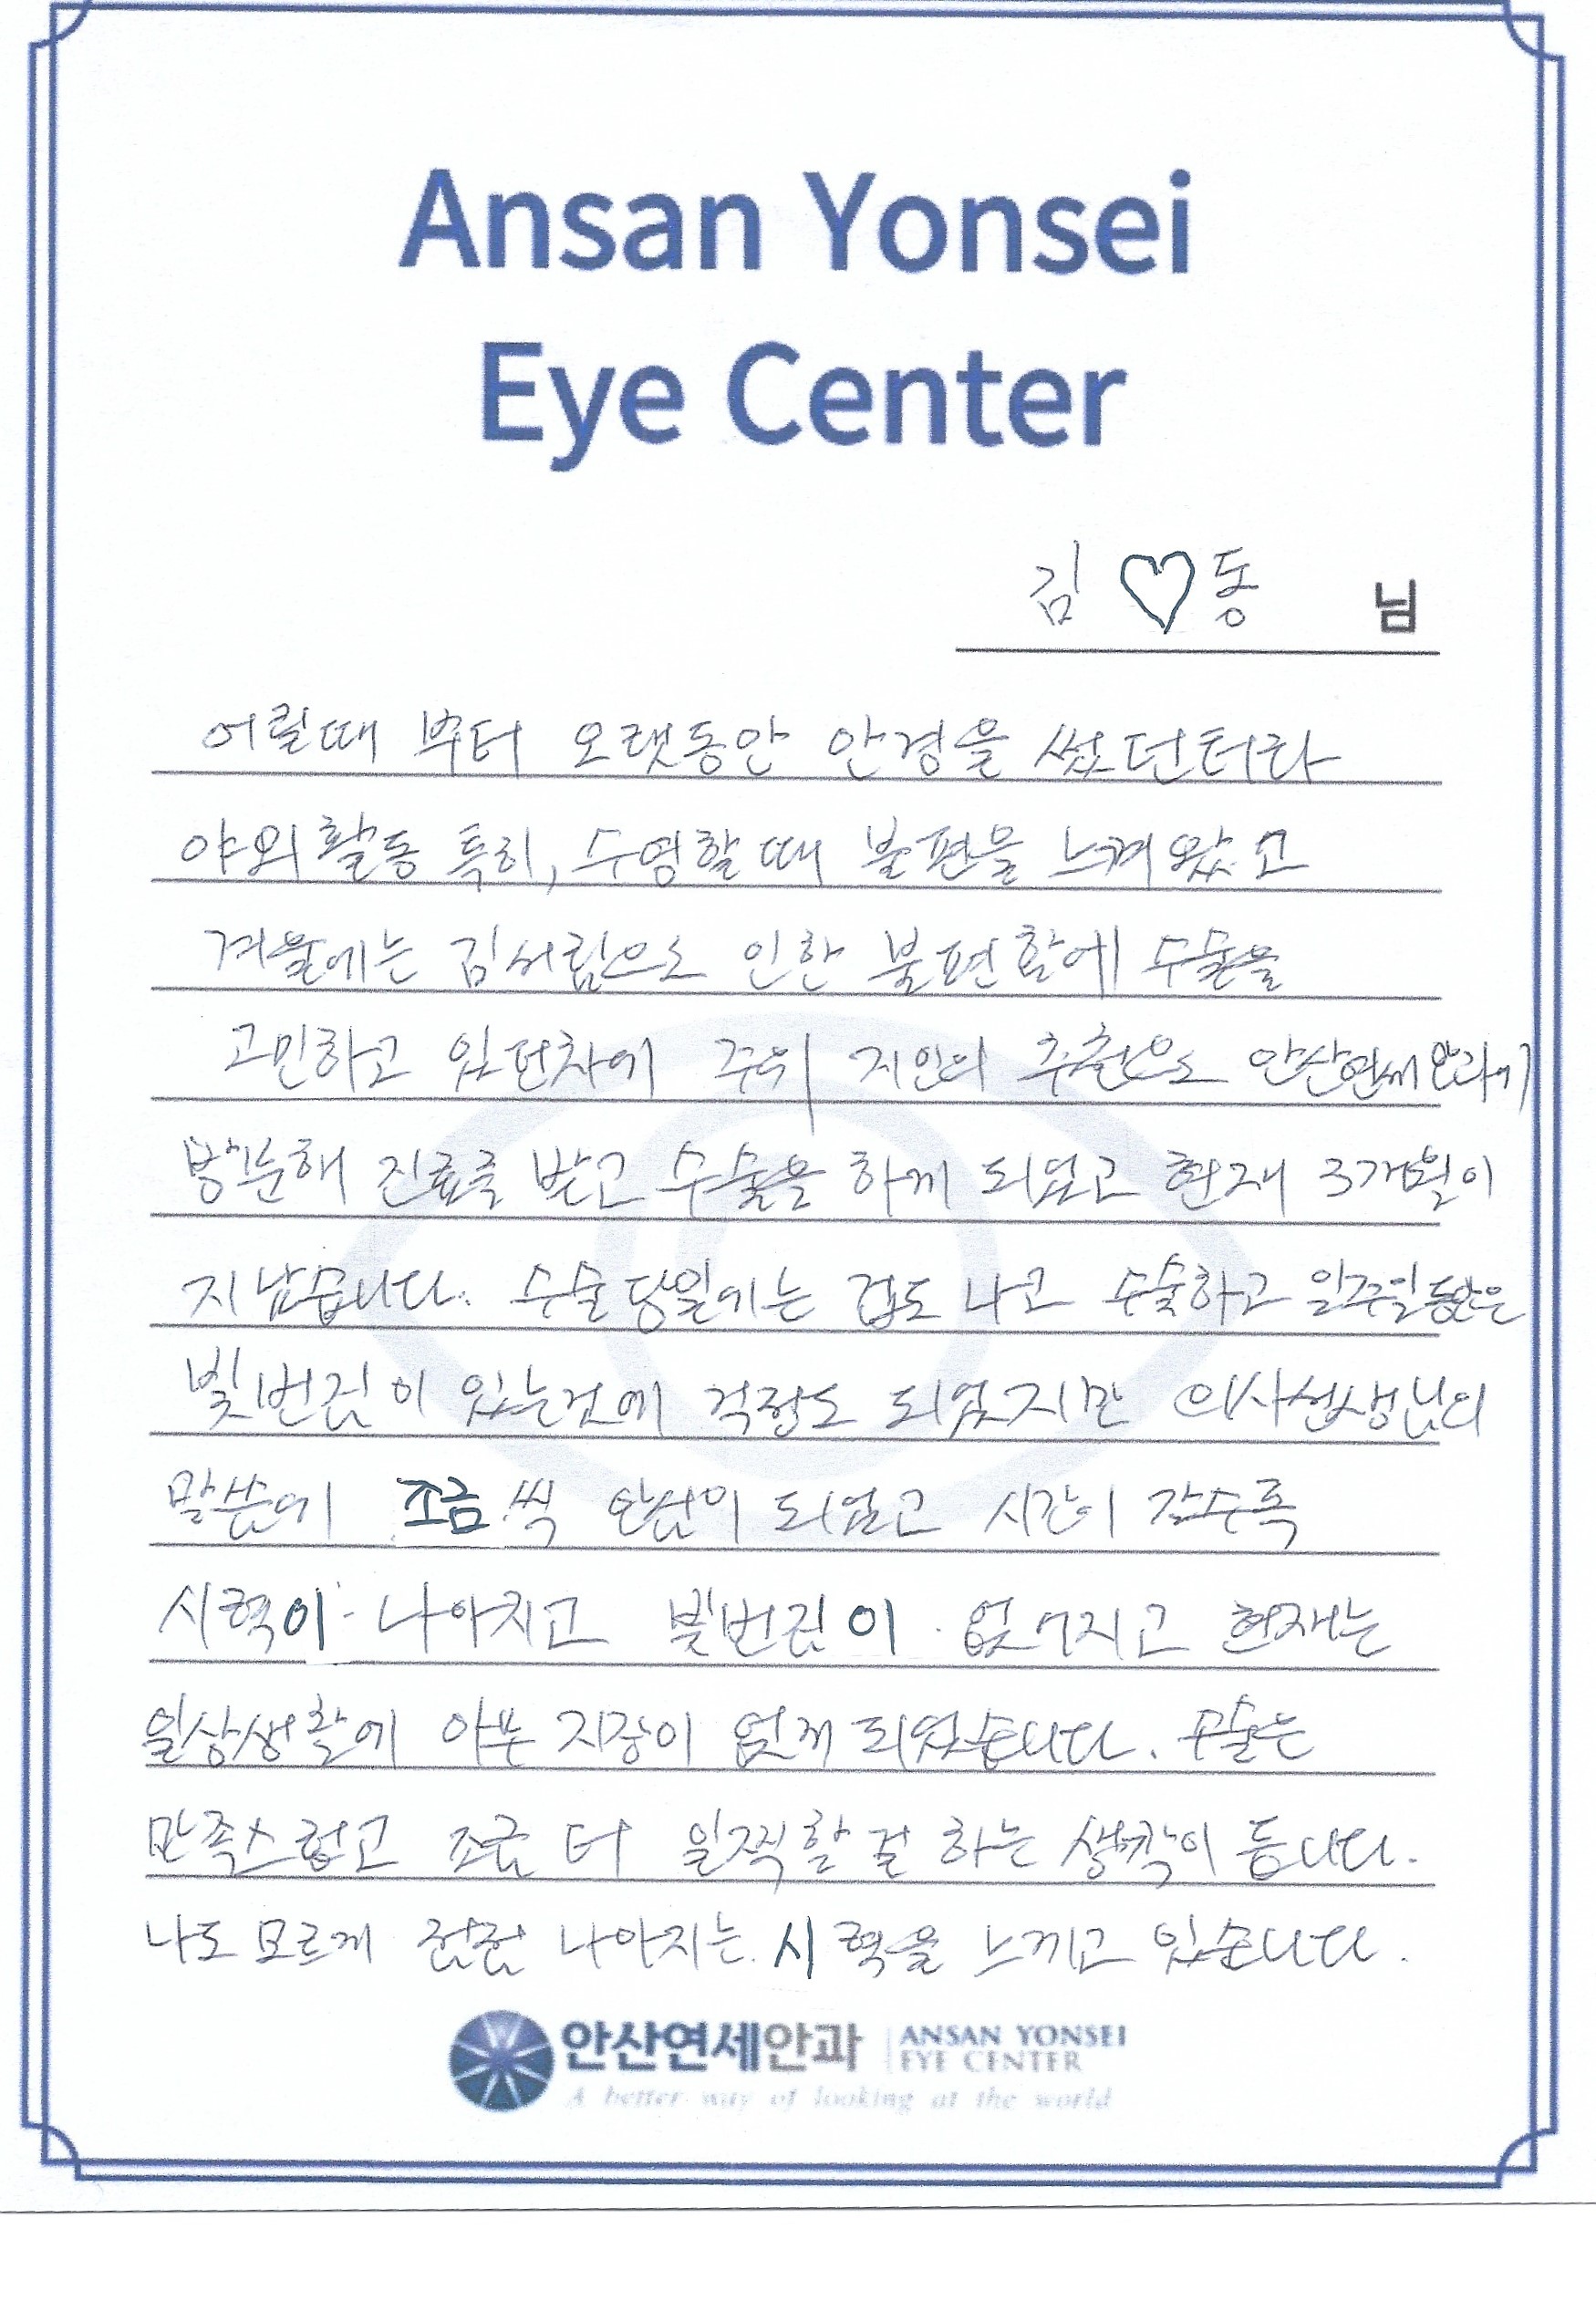 Ansan Yonsei
Eye Center
김♡동 님
어릴때 부터 오랫동안 안경을 썼던터라
야외활동 특히, 수영할때 불편을 느껴왔고
겨울에는 김서림으로 인한 불편함에 수술을
고민하고 있던차에 주위 지인의 추천으로 안산연세안과에
방문해 진료를 받고 수술을 하게 되었고 현재 3개월이
지났습니다. 수술당일에는 겁도 나고 수술하고 일주일동안은
빛번짐이 있는것에 걱정도 되었지만 의사선생님의
말씀에 조금씩 안심이 되었고 시간이 갈수록
시력이 나아지고 빛번짐이 없어지고 현재는
일상생활에 아무 지장이 없게 되었습니다. 수술은
만족스럽고 조금 더 일찍할걸 하는 생각이 듭니다.
나도 모르게 점점 나아지는 시력을 느끼고 있습니다.
안산연세안과 ANSAN YONSEI
EYE CENTER
A better way of looking at the world